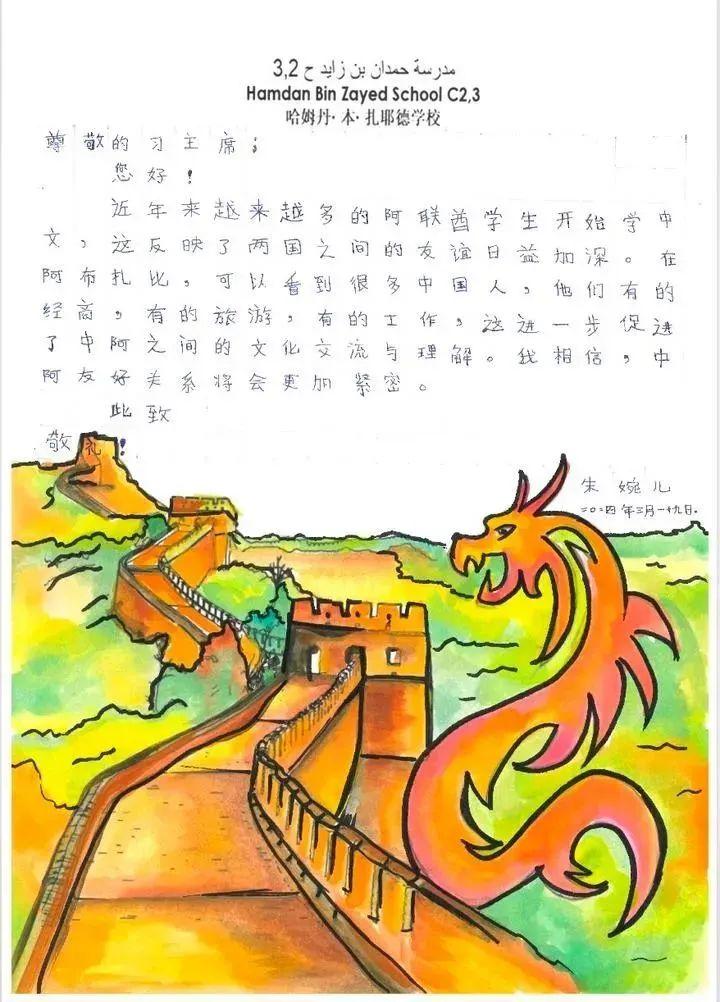 مدرسة حمدان بن زايد ح 3,2
Hamdan Bin Zayed School C2,3
哈姆丹·本·扎耶德学校
尊敬的习主席；
您好！
近年来越来越多的阿联酋学生开始学中
文，这反映了两国之间的友谊日益加深。在
阿布扎比，可以看到很多中国人，他们有的
经商，有的旅游，有的工作，这进一步促进
了中阿之间的文化交流与理解。我相信，中
阿友好关系将会更加紧密。
此致
敬礼！
朱婉儿
二〇二四年三月一十九日.